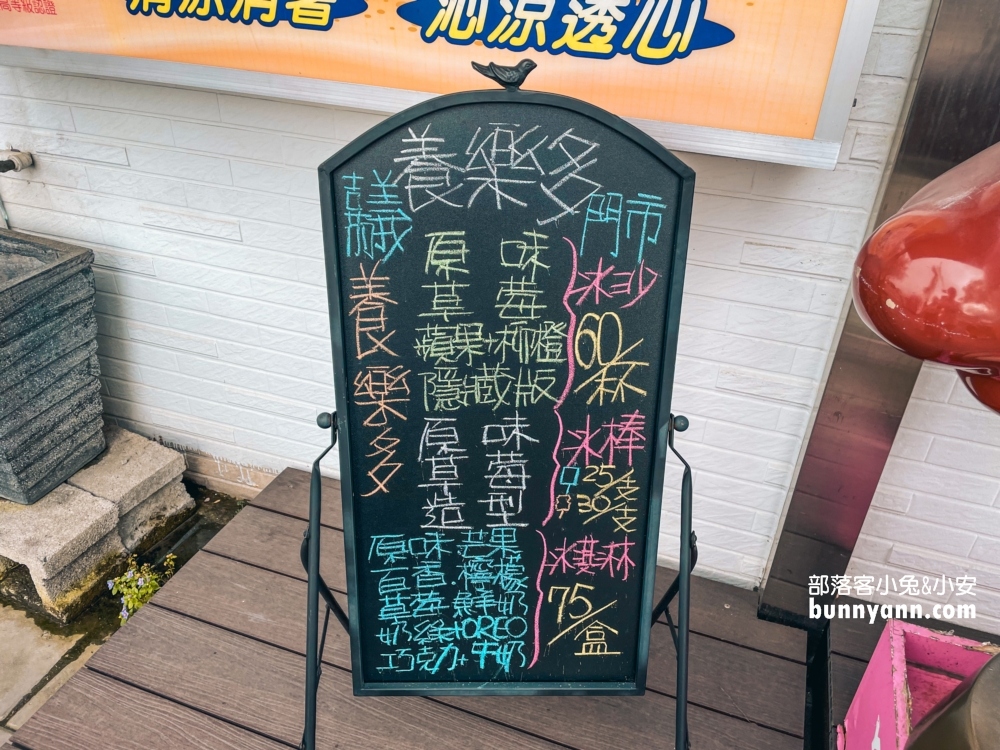 清涼消暑
沁涼透心
養樂多
嘉義
門市
養樂多多
原味
草莓
蘋果+柳橙
隱藏版
冰沙
60/杯
原味
草莓
造型
冰棒
25/支
30/支
原味 芒果
百香 檸檬
草莓 鮮奶
奶綠+OREO
巧克力+牛奶
冰淇淋
75/盒
部落客小兔&小安
bunnyann.com